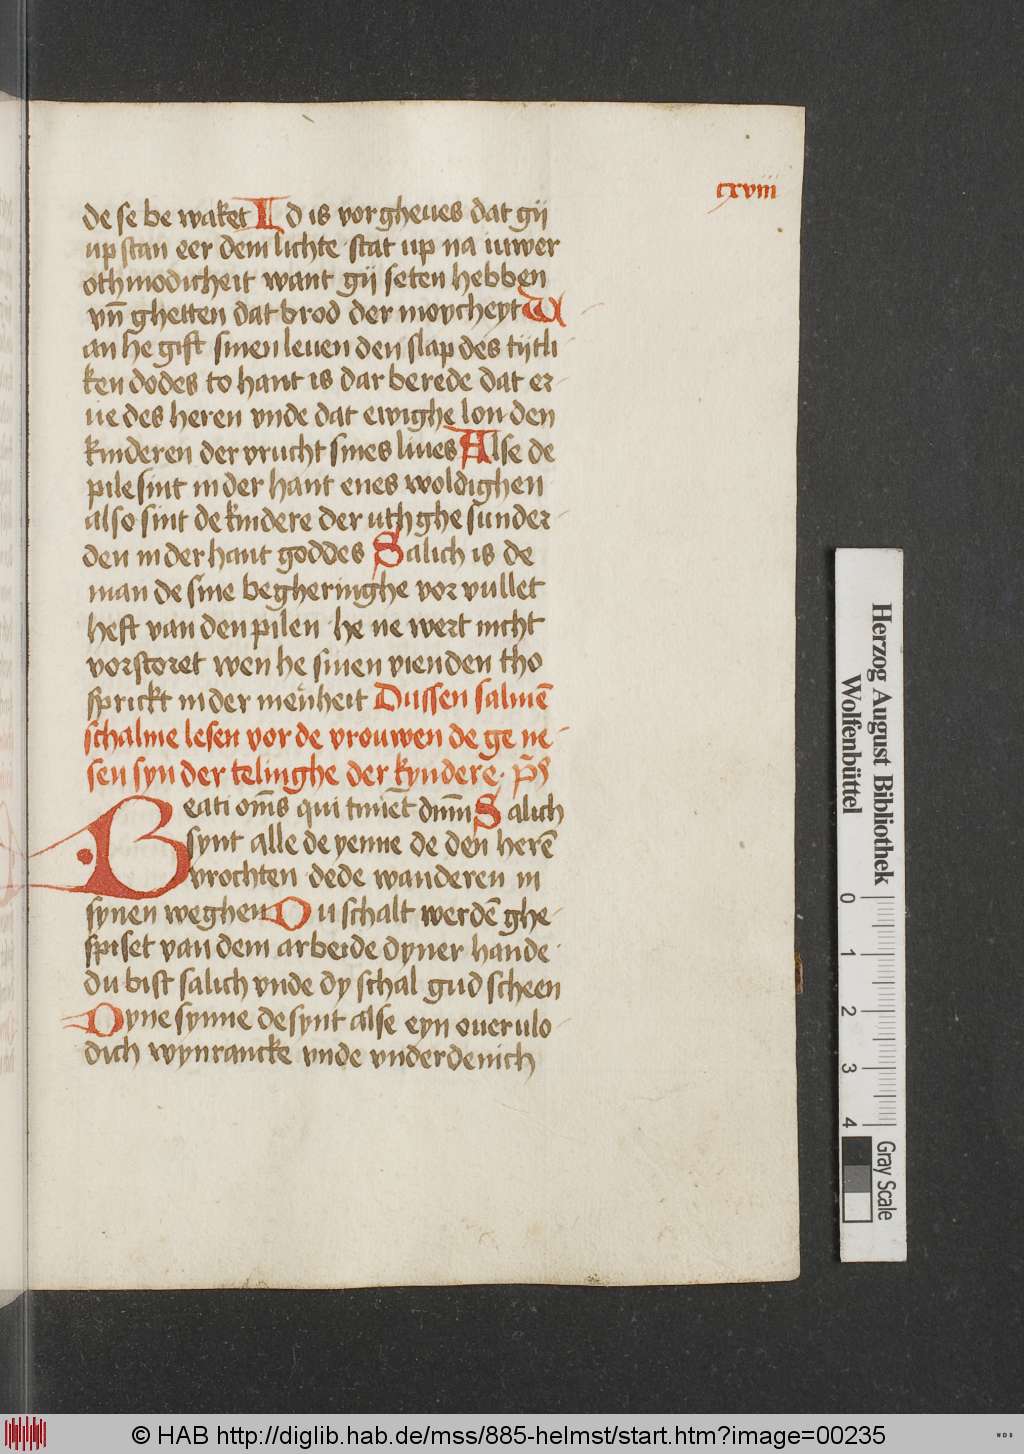 cxviii
de se be waket Id is vorgheues dat gij
up stan eer dem lichte stat up na iuwer
othmodicheit want gij seten hebben
vn̄ ghetten dat brod der moycheyt W
an he gift sinen leuen den slap des tijtli
ken dodes to hant is dar berede dat er-
ue des heren vnde dat ewighe lon den
kinderen der vrucht sines liues Alse de
pile sint in der hant enes woldighen
also sint de kindere der uthghe sunder-
den in der hant goddes Salich is de
man de sine begheringhe vor vullet
heft van den pilen he ne wert nicht
vorstoret wen he sinen vienden tho
sprickt in der menheit Dussen salmē
schalme lesen vor de vrouwen de ge ne-
sen syn der telinghe der kyndere. p̄s
Beati om̄s qui timēt dnm̄ Salich
synt alle de yenne de den herē
vrochten dede wanderen in
synen weghen Du schalt werdē ghe-
spiset van dem arbeide dyner hande
du bist salich vnde dy schal gud scheen
Dyne synne de synt alse eyn ouer ulo-
dich wynrancke vnde vnderdenich
Herzog August Bibliothek
Wolfenbüttel
0 1 2 3 4
Gray Scale
© HAB http://diglib.hab.de/mss/885-helmst/start.htm?image=00235